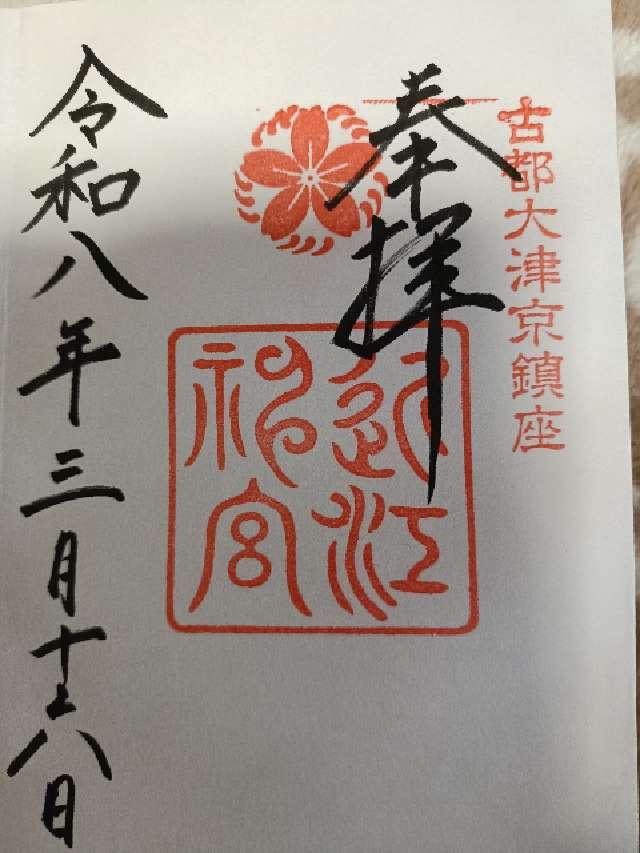 古都大津京鎮座
奉拝
近江神宮
令和八年三月十六日